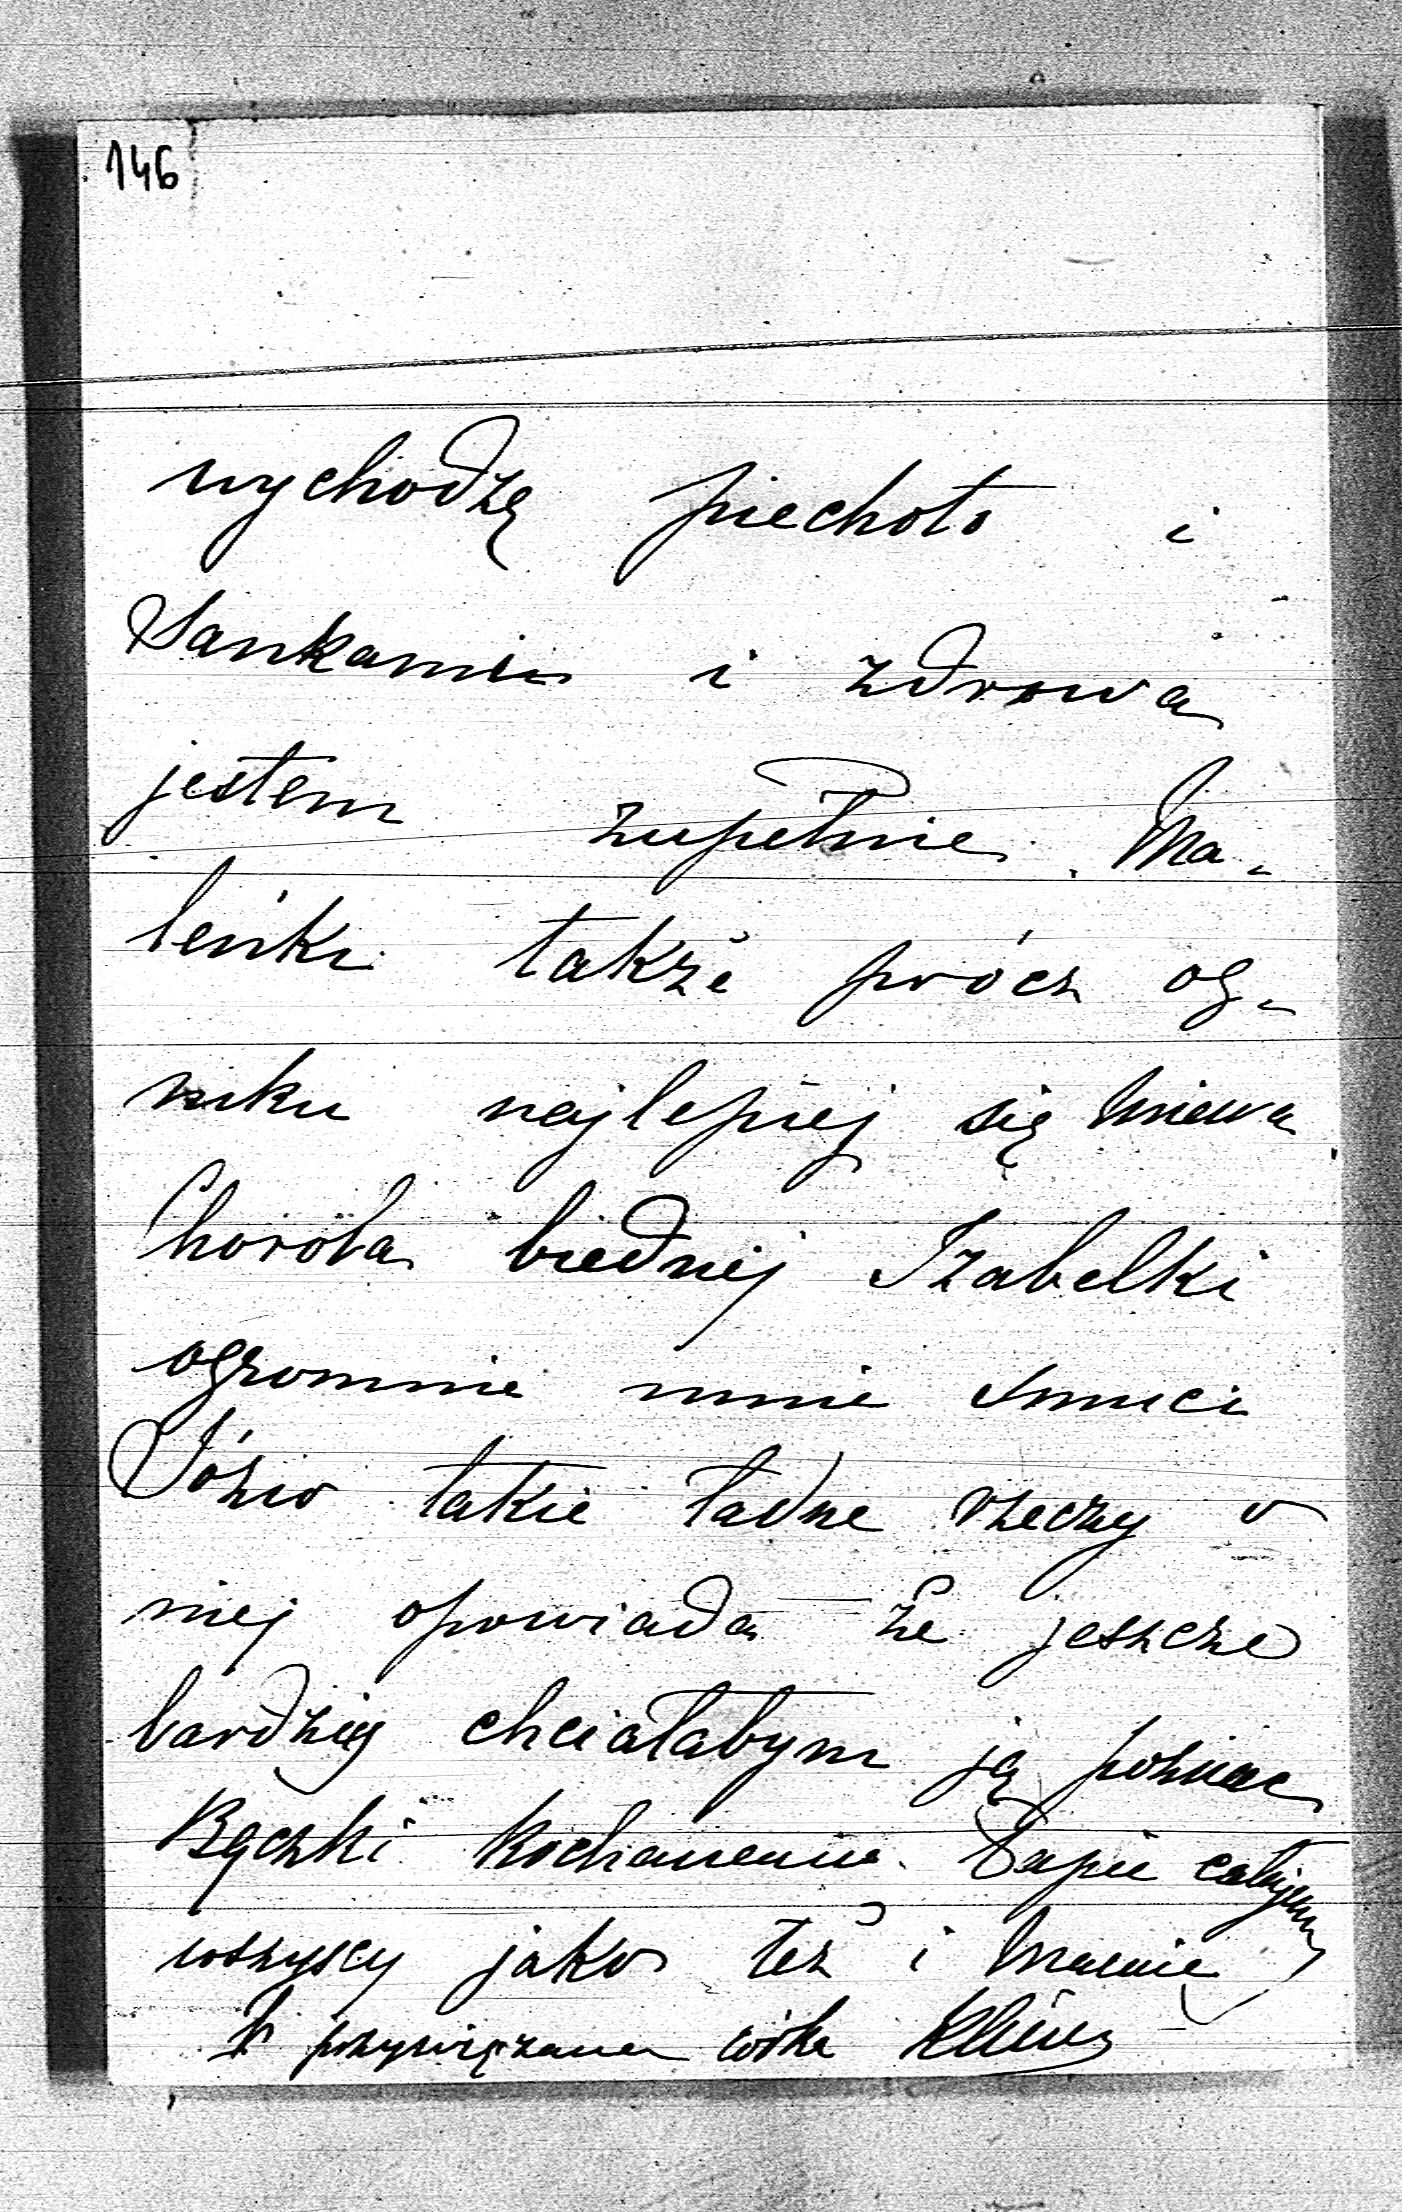 146
wychodzę piechoto i
Sankami i zdrowa
jestem zupełnie. Ma-
leńki także prócz og-
niku najlepiej się miewa
Choroba biednej Izabelki
ogromnie mnie smuci
Józio takie ładne rzeczy o
niej opowiada że jeszcze
bardziej chciałabym ją poznac
Rączki Kochanemu Papie całujemy
wszyscy jako też i Mamie
przywiązana córka